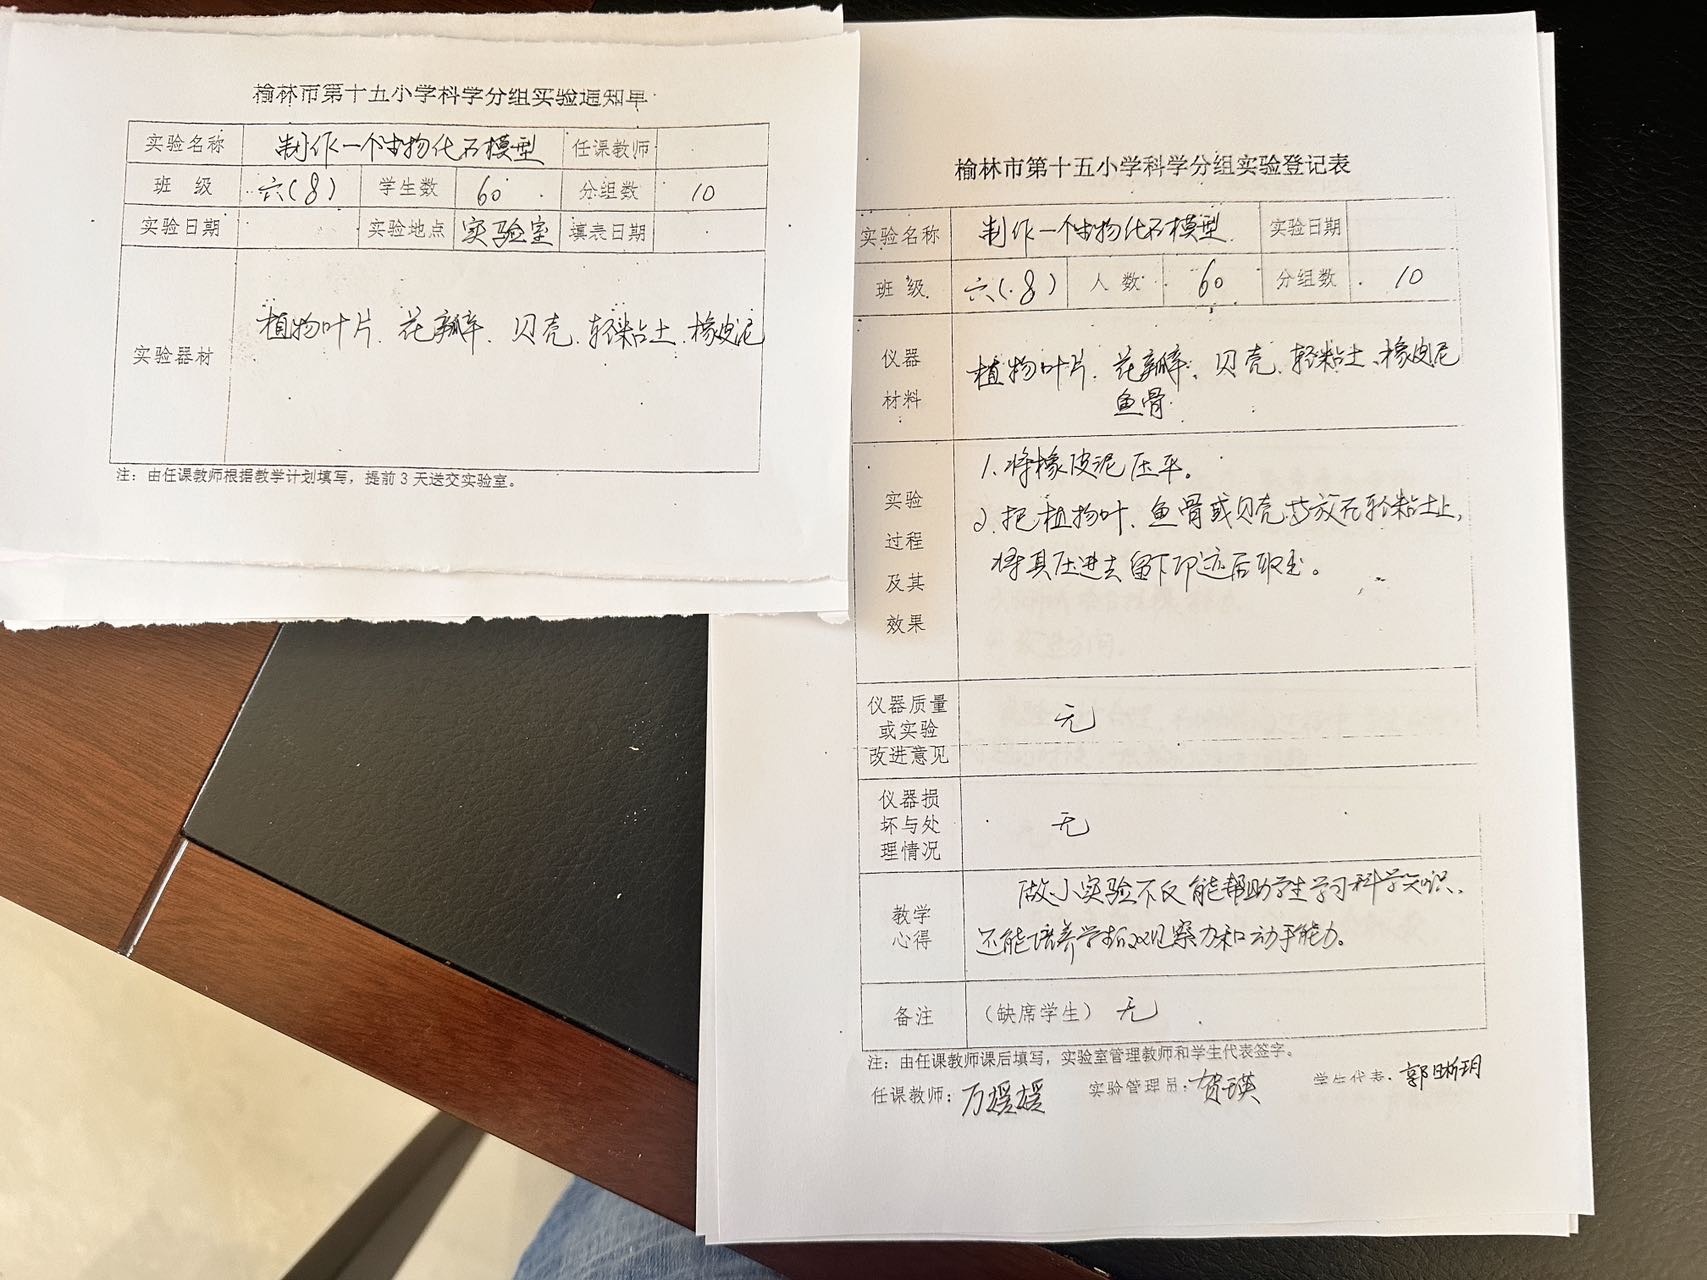 榆林市第十五小学科学分组实验通知单
实验名称 制作一个生物化石模型 任课教师
班 级 六(8) 学生数 60 分组数 10
实验日期 实验地点 实验室 填表日期
实验器材 植物叶片、花瓣、贝壳、轻粘土、橡皮泥
注：由任课教师根据教学计划填写，提前 3 天送交实验室。
榆林市第十五小学科学分组实验登记表
实验名称 制作一个生物化石模型 实验日期
班 级 六(8) 人 数 60 分组数 10
仪器
材料
植物叶片、花瓣、贝壳、轻粘土、橡皮泥
鱼骨
实验
过程
及其
效果
1.将橡皮泥压平。
2.把植物叶、鱼骨或贝壳等放在轻粘土上,
将其压进去留下印迹后取出。
仪器质量
或实验
改进意见
无
仪器损
坏与处
理情况
无
教学
心得
做小实验不仅能帮助学生学习科学知识、
还能培养学生的观察力和动手能力。
备注 （缺席学生） 无
注：由任课教师课后填写，实验室管理教师和学生代表签字。
任课教师：万媛媛 实验管理员：贺瑛 学生代表：郭晰玥